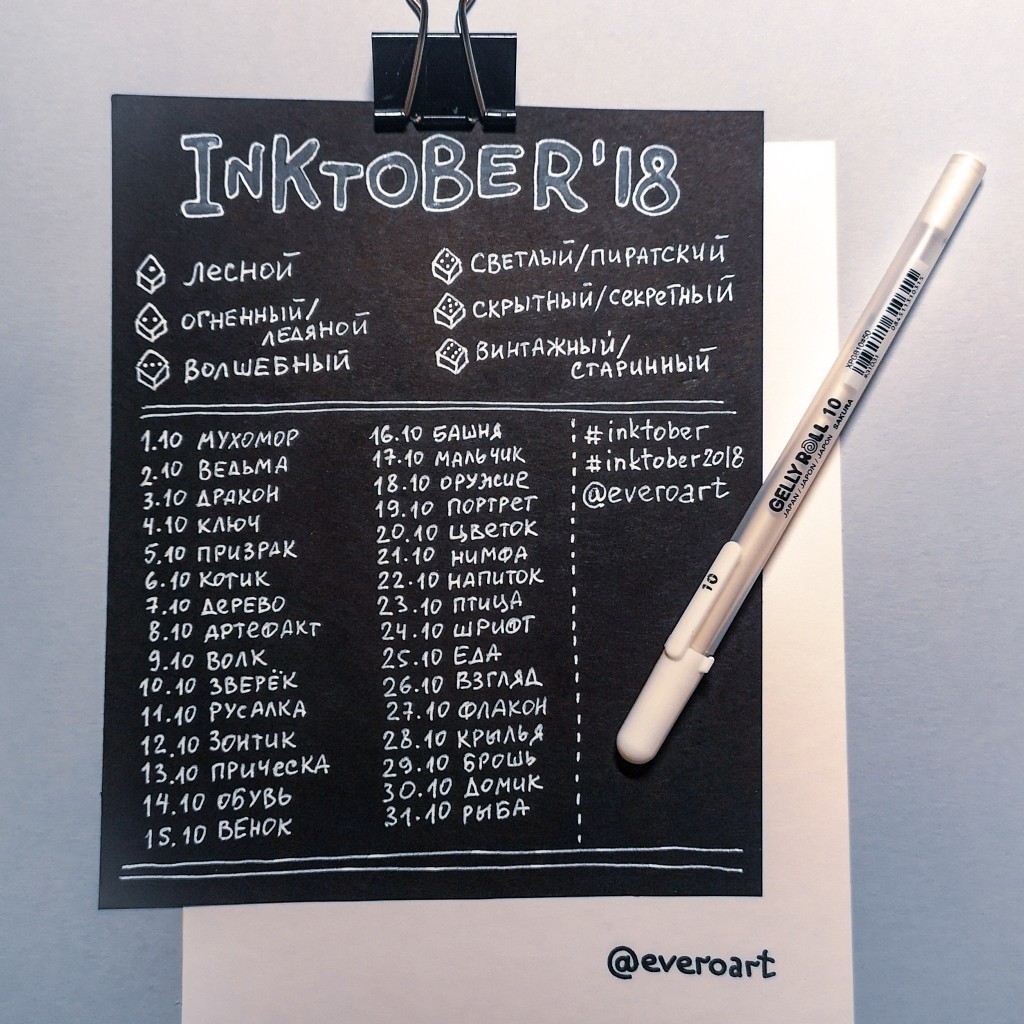 INKTOBER'18
ЛЕСНОЙ
ОГНЕННЫЙ/
ЛЕДЯНОЙ
ВОЛШЕБНЫЙ
СВЕТЛЫЙ/ПИРАТСКИЙ
СКРЫТНЫЙ/СЕКРЕТНЫЙ
ВИНТАЖНЫЙ/
СТАРИННЫЙ
1.10 МУХОМОР
2.10 ВЕДЬМА
3.10 ДРАКОН
4.10 КЛЮЧ
5.10 ПРИЗРАК
6.10 КОТИК
7.10 ДЕРЕВО
8.10 АРТЕФАКТ
9.10 ВОЛК
10.10 ЗВЕРЁК
11.10 РУСАЛКА
12.10 ЗОНТИК
13.10 ПРИЧЕСКА
14.10 ОБУВЬ
15.10 ВЕНОК
16.10 БАШНЯ
17.10 МАЛЬЧИК
18.10 ОРУЖИЕ
19.10 ПОРТРЕТ
20.10 ЦВЕТОК
21.10 НИМФА
22.10 НАПИТОК
23.10 ПТИЦА
24.10 ШРИФТ
25.10 ЕДА
26.10 ВЗГЛЯД
27.10 ФЛАКОН
28.10 КРЫЛЬЯ
29.10 БРОШЬ
30.10 ДОМИК
31.10 РЫБА
#inktober
#inktober2018
@everoart
GELLY ROLL 10
JAPAN / JAPON / JAPON SAKURA
10
@everoart